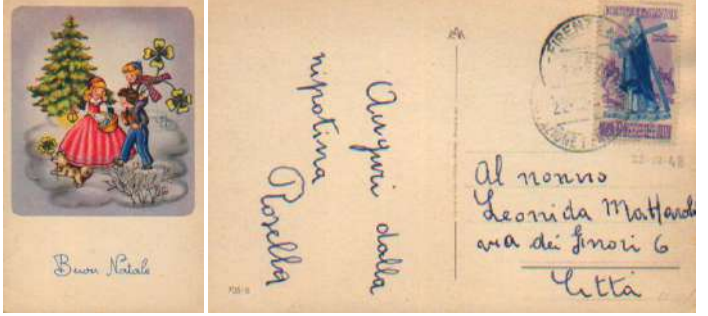 Buon Natale
Auguri dalla
nipotina
Rosella
FIRENZE
Al nonno
Leonida
via dei Ginori 6
Città